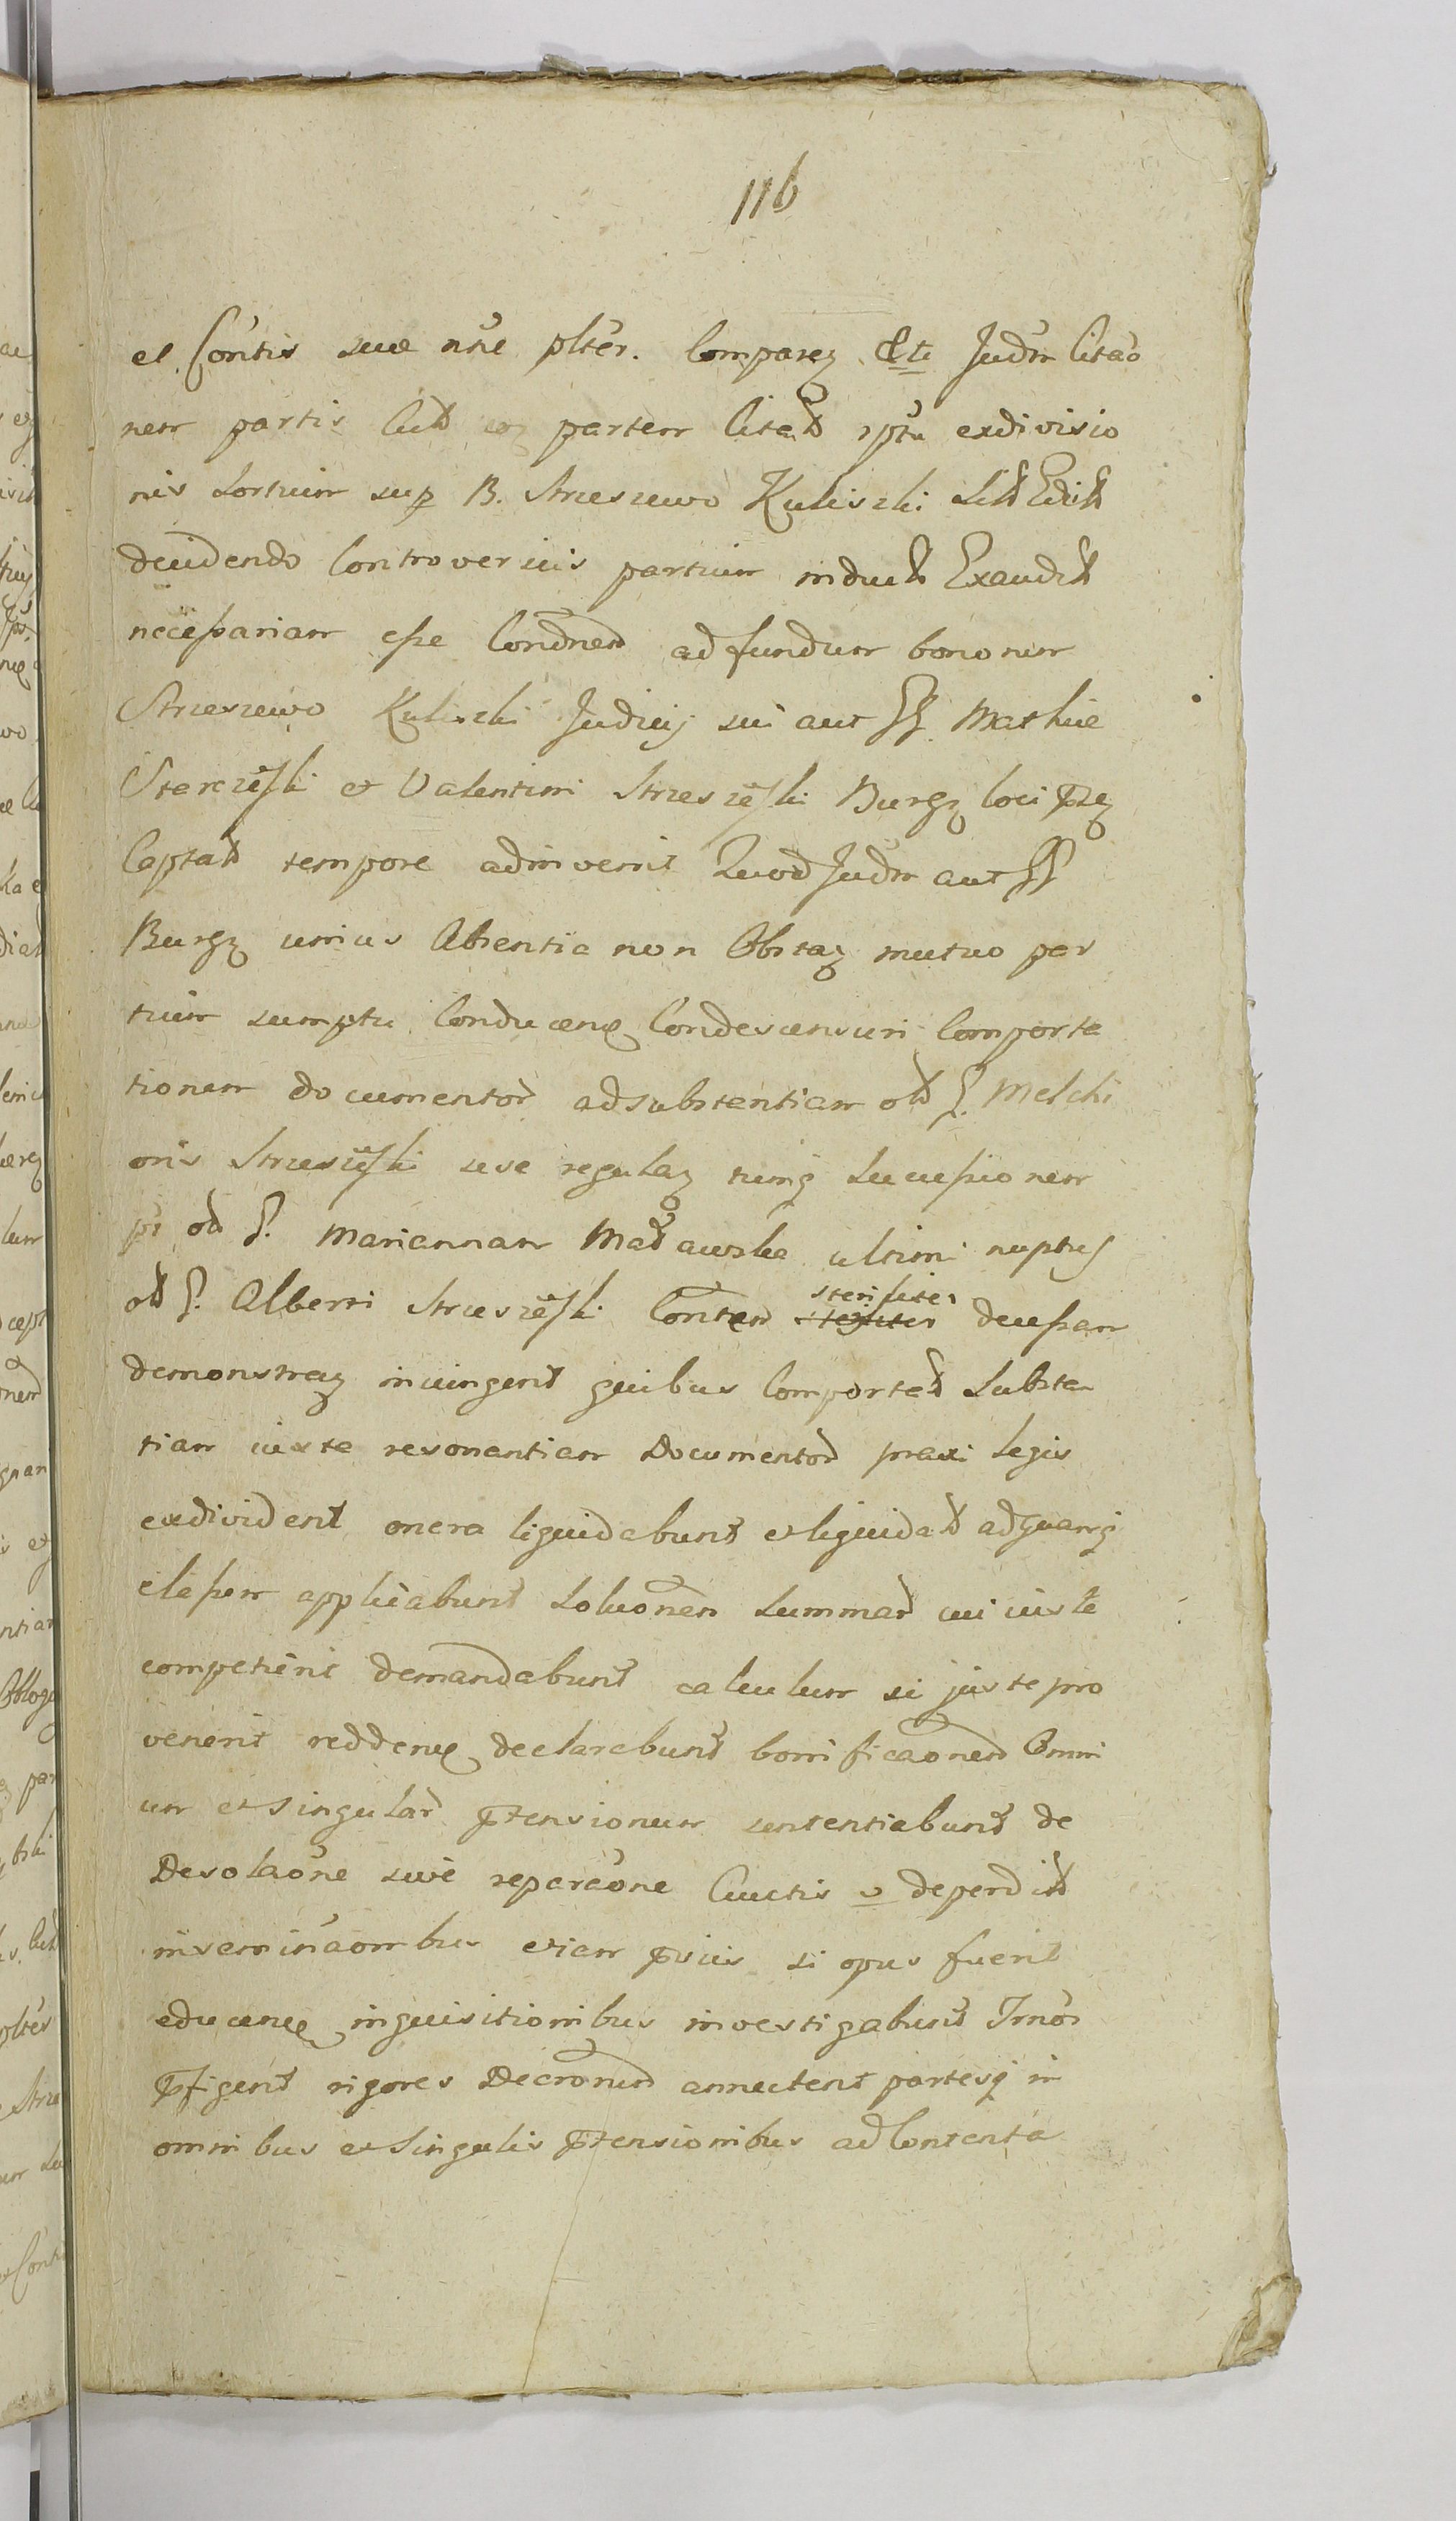 116
et Contis suae nne plter. Comparen Et te Judm Citao
nem partis Citt partem Citatt rptu exdivisio
nis Sortium sup B. Strzeszewo Kuliszki
decidendo Controversiis partium induct Exaudit
necessariam esse Condnem ad fundum bonorum
Strzeszewo Kuliszki Judicij sui aut GG. Mathiae
et Valentini Strzeszeski Burg loci
Captat tempore adinvenit Quod Judm aut GG
Burg unius Absentia non Obstan mutuo par
tium sumptu Conducen Condescensuri Comporta
tionem documentor ad substantiam olt G. Melchi
oris Strzeszeski sese regulan tumq Successionem
pr od G. Mariannam ultimi nuptus
olt G. Alberti Strzeszeski steriliter decessam
demonstran iniungent quibus Comportat Substan
tiam iuxta resonantiam Documentor praxi Legis
exdivident onera liquidabunt et liquidat ad quamq
classem applicabunt Soluonem Summar cui iuste
competierit demandabunt calculum si juste pro
venerit redden declarabunt bonificaonem Omni
um et singular ptensionum sententiabunt de
Desolaone sive reparaone Cunctis deperdit
inseminaonibus etiam pviis si opus fuerit
educen inquisitionibus investigabunt
pfigent rigores Decronem annectent partesq in
omnibus et Singulis ptensionibus ad Contenta